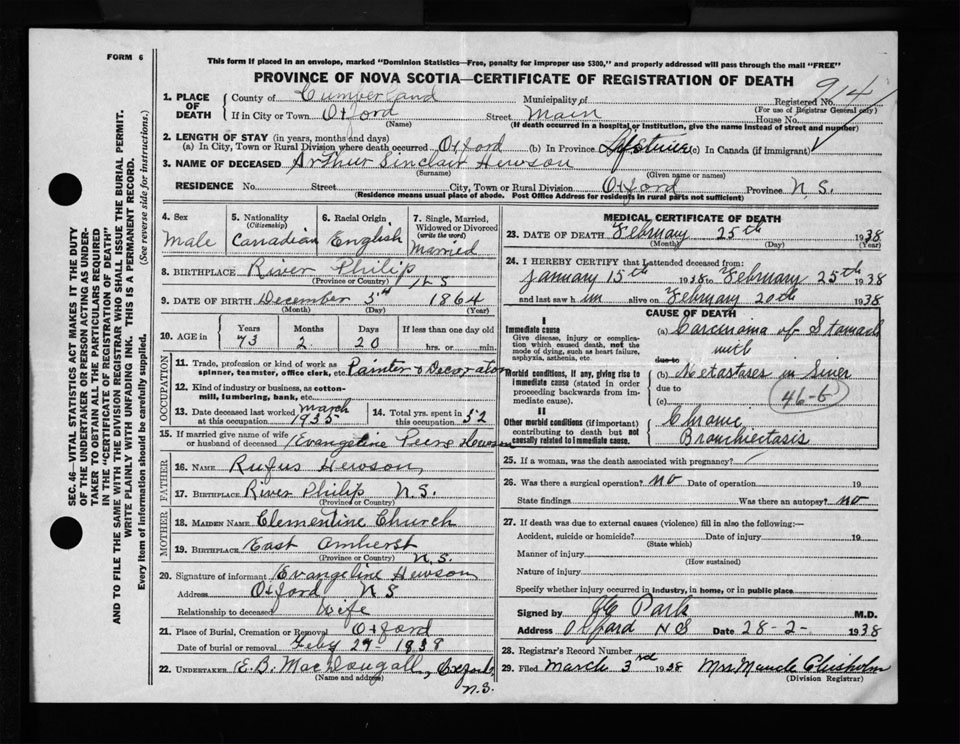 FORM 6
This form if placed in an envelope, marked "Dominion Statistics—Free, penalty for improper use $300," and properly addressed will pass through the mail "FREE"
PROVINCE OF NOVA SCOTIA—CERTIFICATE OF REGISTRATION OF DEATH
SEC. 46—VITAL STATISTICS ACT MAKES IT THE DUTY
OF THE UNDERTAKER OR PERSON ACTING AS UNDER-
TAKER TO OBTAIN ALL THE PARTICULARS REQUIRED
IN THE "CERTIFICATE OF REGISTRATION OF DEATH"
AND TO FILE THE SAME WITH THE DIVISION REGISTRAR WHO SHALL ISSUE THE BURIAL PERMIT.
WRITE PLAINLY WITH UNFADING INK. THIS IS A PERMANENT RECORD.
Every item of information should be carefully supplied. (See reverse side for instructions.)
1. PLACE OF DEATH County of Cumberland Municipality of Registered No. 914
(For use of Registrar General only)
If in City or Town Oxford Street Main House No.
(Name) (If death occurred in a hospital or institution, give the name instead of street and number)
2. LENGTH OF STAY (in years, months and days)
(a) In City, Town or Rural Division where death occurred Oxford (b) In Province Lifetime (c) In Canada (if immigrant)
3. NAME OF DECEASED Arthur Sinclair Hewson
(Surname) (Given name or names)
RESIDENCE No. Street City, Town or Rural Division Oxford Province N.S.
(Residence means usual place of abode. Post Office Address for residents in rural parts not sufficient)
4. Sex Male
5. Nationality (Citizenship) Canadian
6. Racial Origin English
7. Single, Married, Widowed or Divorced (write the word) Married
8. BIRTHPLACE River Philip N S
(Province or Country)
9. DATE OF BIRTH December 5th 1864
(Month) (Day) (Year)
10. AGE in Years 73 Months 2 Days 20 If less than one day hrs. or min.
OCCUPATION
11. Trade, profession or kind of work as spinner, teamster, office clerk, etc. Painter & Decorator
12. Kind of industry or business, as cotton-mill, lumbering, bank, etc.
13. Date deceased last worked at this occupation March 1935
14. Total yrs. spent in 52
15. If married give name of wife or husband of deceased Evangeline Hewson
FATHER
16. NAME Rufus Hewson
17. BIRTHPLACE River Philip N.S.
(Province or Country)
MOTHER
18. MAIDEN NAME Clementine Church
19. BIRTHPLACE East Amherst N.S.
(Province or Country)
20. Signature of informant Evangeline Hewson
Address Oxford N S
Relationship to deceased Wife
21. Place of Burial, Cremation or Removal Oxford
Date of burial or removal Feby 27- 1938
22. UNDERTAKER E.B. MacDougall, Oxford, N.S.
(Name and address)
MEDICAL CERTIFICATE OF DEATH
23. DATE OF DEATH February 25th 1938
(Month) (Day) (Year)
24. I HEREBY CERTIFY that I attended deceased from:
January 15th 1938 to February 25th 1938
and last saw him alive on February 20th 1938
CAUSE OF DEATH
I
Immediate cause
Give disease, injury or complica-
tion which caused death, not the
mode of dying, such as heart failure,
asphyxia, asthenia, etc.
(a) Carcinoma of Stomach
with
due to
Morbid conditions, if any, giving rise to immediate cause (stated in order proceeding backwards from immediate cause).
(b) Metastases in Liver
due to
(c) 46-b
II
Other morbid conditions (if important) contributing to death but not causally related to immediate cause.
Chronic
Bronchiectasis
25. If a woman, was the death associated with pregnancy?
26. Was there a surgical operation? No Date of operation 19
State findings Was there an autopsy? No
27. If death was due to external causes (violence) fill in also the following:—
Accident, suicide or homicide? Date of injury 19
(State which)
Manner of injury
(How sustained)
Nature of injury
Specify whether injury occurred in industry, in home, or in public place
Signed by Park M.D.
Address Oxford N S Date 28-2- 1938
28. Registrar's Record Number
29. Filed March 3rd 1938 Mrs. Maude Chisholm
(Division Registrar)